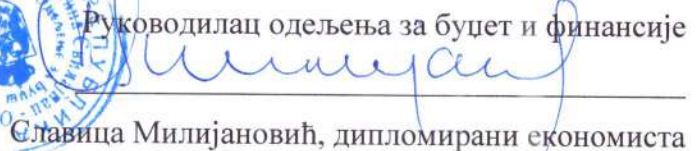 Руководилац одељења за буџет и финансије
Славица Милијановић, дипломирани економиста